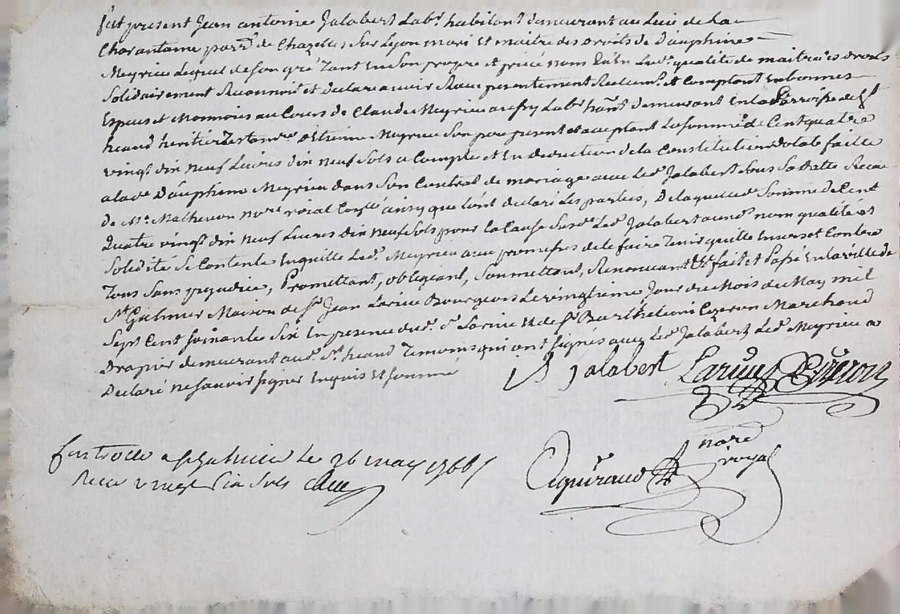 fut present Jean antoine Jalabert Labr. habitant demeurant au Lieu de La
Charantaine parr. de Chazelles Sur Lyon mari Et maitre des droits de Dauphine
Meyrieu Lequel de Son gré tant En Son propre et privé nom qu'En Lad. qualité de maitre des droits
Solidairement Reconnoit et declare avoir Reçu presentement Reellem. et Comptant En bonnes
Especes et Monnoies au Cours de Claude Meyrieu Labr. hant. demeurant En la Parroisse de St.
heand heritier d'Etienne Meyrieu Son pere present et acceptant La Somme de Cent quatre
vingt dix neuf Livres dix neuf Sols a Compte et En deduction de la Constitution dotale faite
a lad. Dauphine Meyrieu dans Son Contrat de mariage avec Led. Jalabert Sous Sa Datte Recu
De Me. Mathevon nore. roial ainsy que l'ont declaré Les parties, De laquelle Somme de Cent
Quatre vingt dix neuf Livres dix neuf Sols pour la Cause Susd. Led. Jalabert aud. nom qualité et
Solidité Se Contente En quitte Led. Meyrieu avec promesse de le faire tenir quitte Envers et Contre
Tous Sans prejudice, Promettant, obligeant, Soumettant, Renonceant &c. fait et Passé En la ville de
St. Galmier Maison de Sr. Jean Larive Bourgeois Le vingtieme Jour du Mois de May mil
Sept Cent Soixante Six En presence dud. Sr. Larive Et de Sr. Barthelemi Marchand
Drapier demeurant aud. St. heand Temoins qui ont Signés avec Led. Jalabert Led. Meyrieu a
Declaré ne Savoir Signer Enquis Et Sommé
Jalabert Larive
nore.
royal
Controllé a St Galmier Le 26 may 1766
Reçu vingt Six Sols